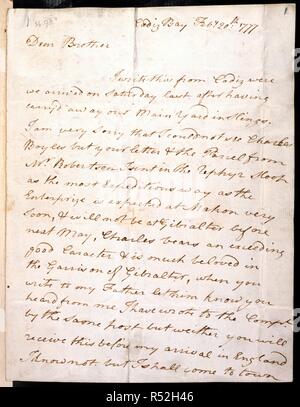 Cadiz Bay Feby 20th 1777
Dear Brother
I write this from Cadiz were
we arrived on Saturday last after having
carry'd away our Main Yard in Slings.
I am very Sorry that I could not see Charles
Boyles but your letter & the Parcel from
Mr Robertson I sent in the Zephyr Sloop
as the most Expeditious way as the
Enterprize is expected at Mahon very
soon, & will not be at Gibralter before
next May, Charles bears an exceeding
good Caracter & is much beloved in
the Garrison of Gibralter, when you
write to my Father let him know you
heard from me I have wrote to the
by the same post but wether you will
receive this before my arrival in England
I know not but I shall come to town
alamy
R52H46